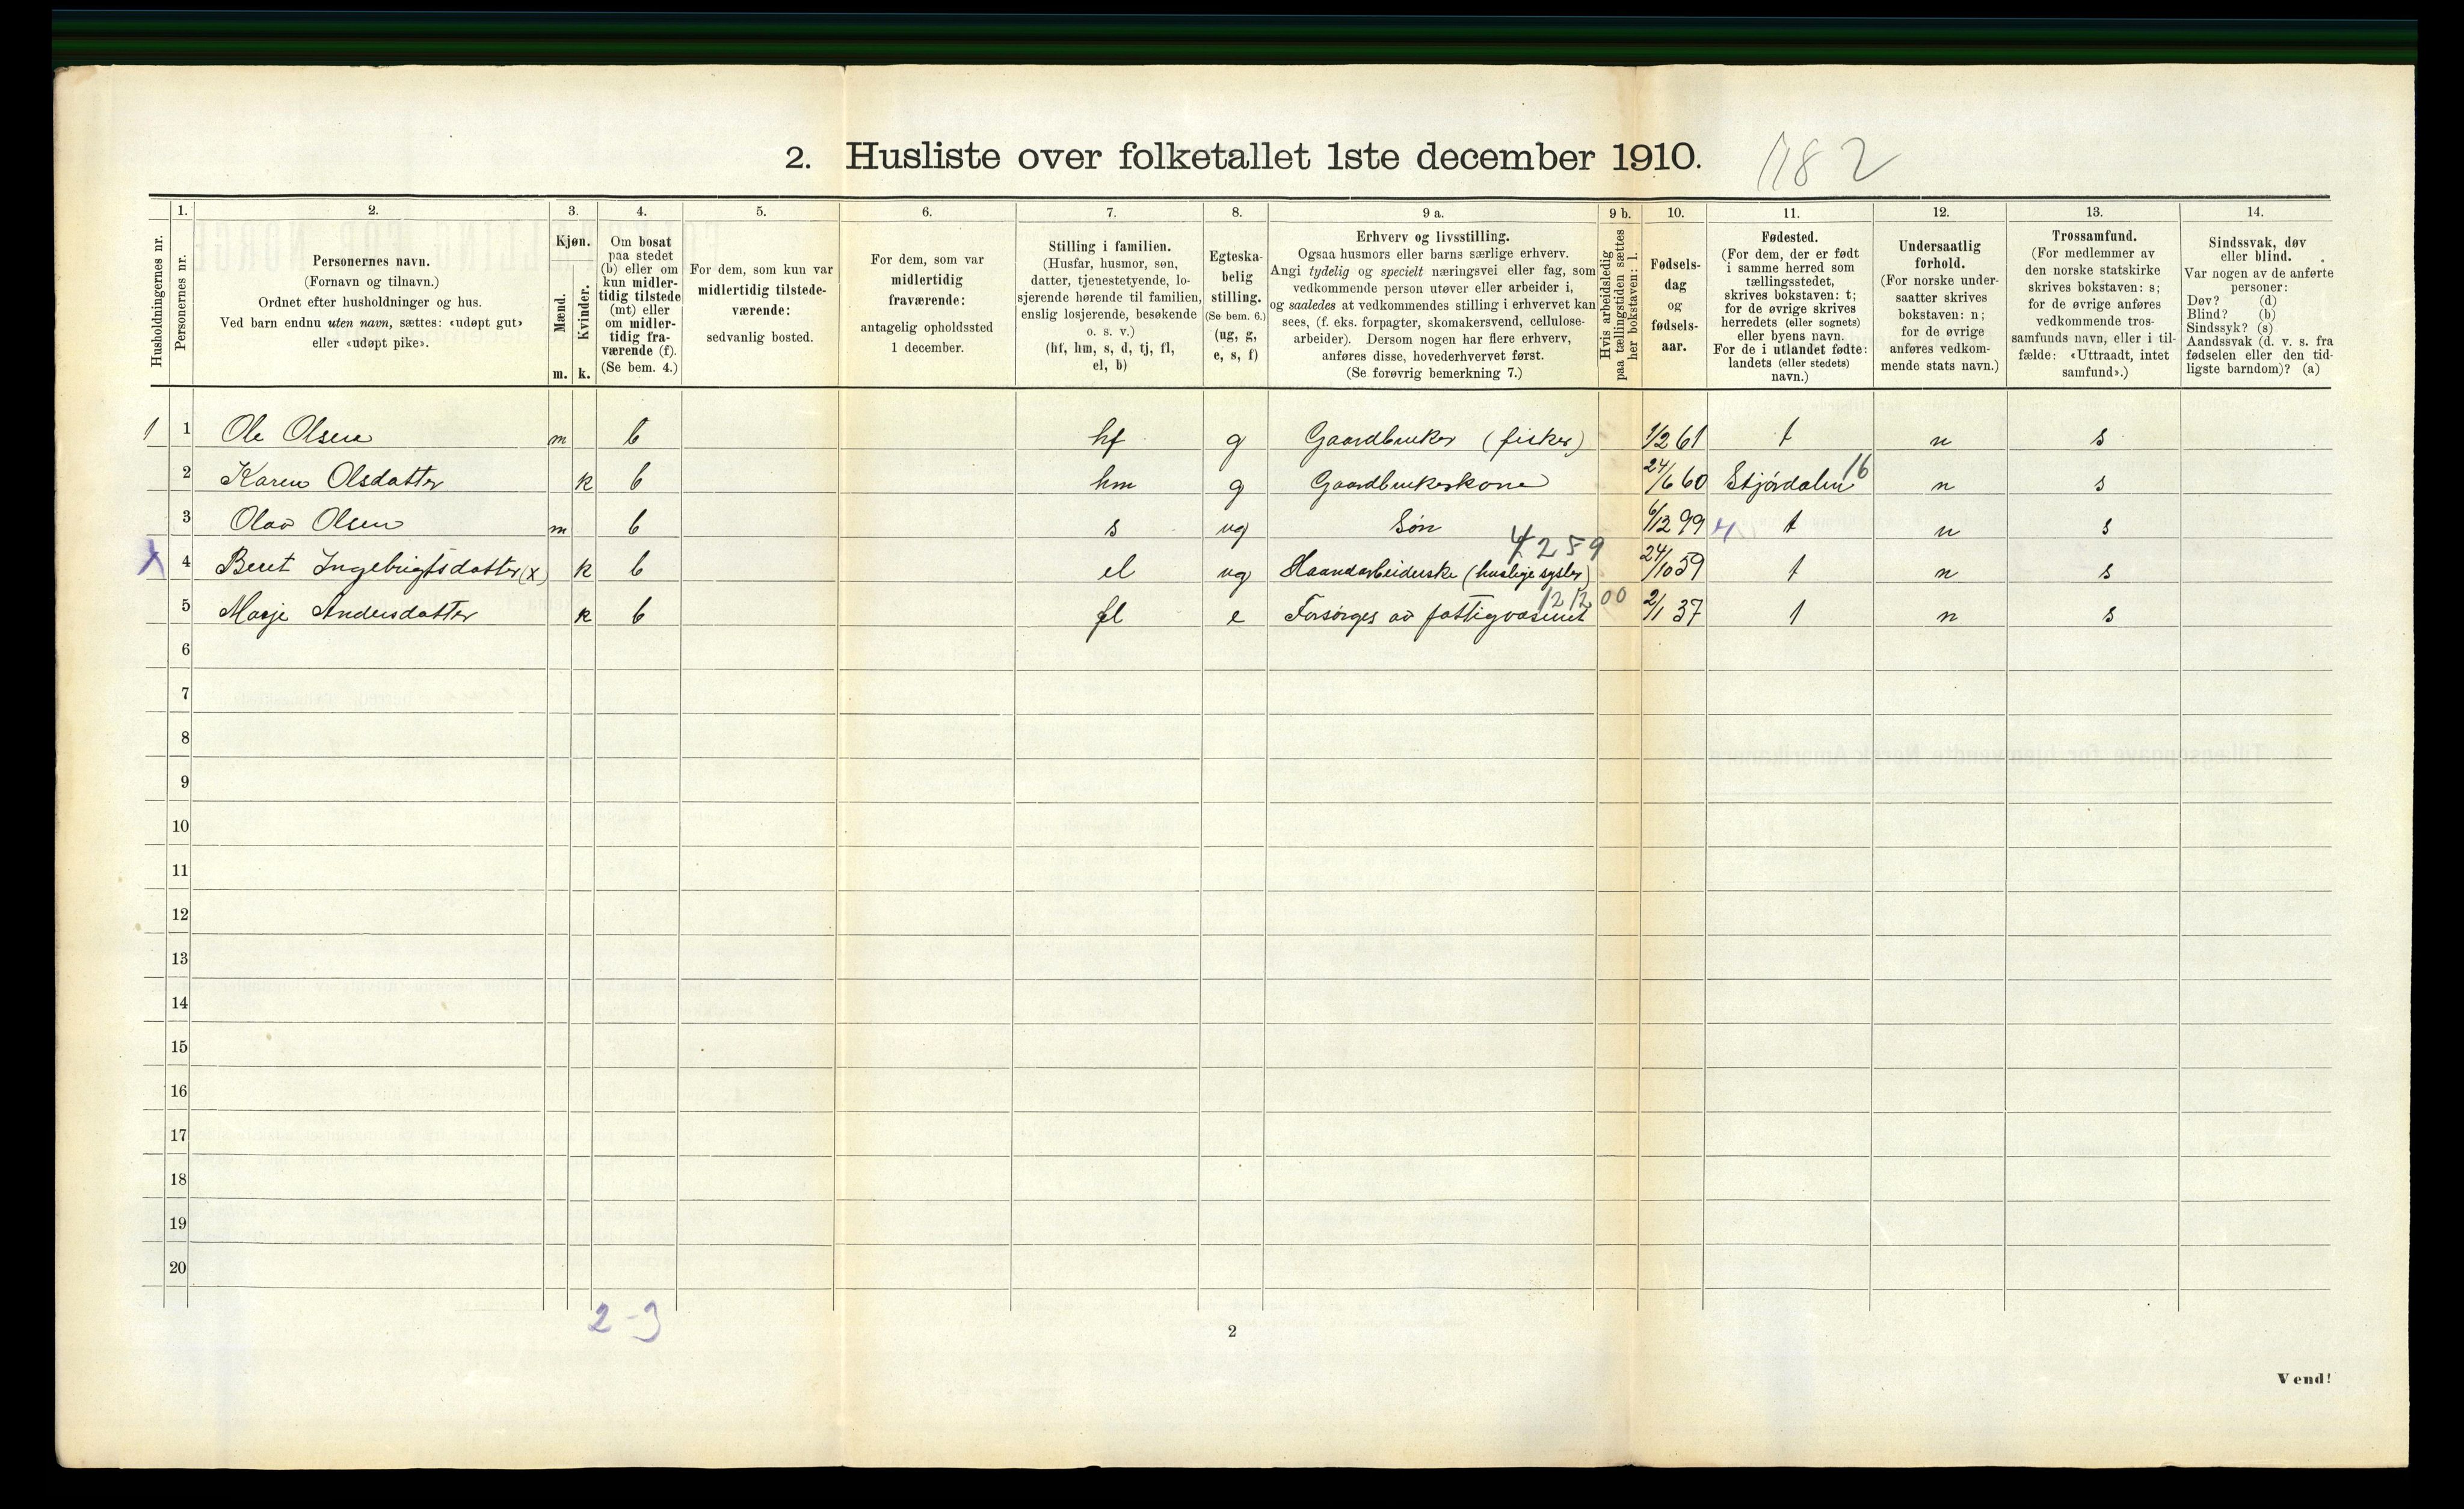 2. Husliste over folketallet 1ste december 1910. 1182
1. 2. 3. 4. 5. 6. 7. 8. 9 a. 9 b. 10. 11. 12. 13. 14.
Husholdningernes nr.
Personernes nr.
Personernes navn.
(Fornavn og tilnavn.)
Ordnet efter husholdninger og hus.
Ved barn endnu uten navn, sættes: «udøpt gut»
eller «udøpt pike».
Kjøn.
Mænd.
Kvinder.
m. k.
Om bosat
paa stedet
(b) eller om
kun midler-
tidig tilstede
(mt) eller
om midler-
tidig fra-
værende (f).
(Se bem. 4.)
For dem, som kun var
midlertidig tilstede-
værende:
sedvanlig bosted.
For dem, som var
midlertidig
fraværende:
antagelig opholdssted
1 december.
Stilling i familien.
(Husfar, husmor, søn,
datter, tjenestetyende, lo-
sjerende hørende til familien,
enslig losjerende, besøkende
o. s. v.)
(hf, hm, s, d, tj, fl,
el, b)
Egteska-
belig
stilling.
(Se bem. 6.)
(ug, g,
e, s, f)
Erhverv og livsstilling.
Ogsaa husmors eller barns særlige erhverv.
Angi tydelig og specielt næringsvei eller fag, som
vedkommende person utøver eller arbeider i,
og saaledes at vedkommendes stilling i erhvervet kan
sees, (f. eks. forpagter, skomakersvend, cellulose-
arbeider). Dersom nogen har flere erhverv,
anføres disse, hovederhvervet først.
(Se forøvrig bemerkning 7.)
Hvis arbeidsledig
paa tællingstiden sættes
her bokstaven: l.
Fødsels-
dag
og
fødsels-
aar.
Fødested.
(For dem, der er født
i samme herred som
tællingsstedet,
skrives bokstaven: t;
for de øvrige skrives
herredets (eller sognets)
eller byens navn.
For de i utlandet fødte:
landets (eller stedets)
navn.)
Undersaatlig
forhold.
(For norske under-
saatter skrives
bokstaven: n;
for de øvrige
anføres vedkom-
mende stats navn.)
Trossamfund.
(For medlemmer av
den norske statskirke
skrives bokstaven: s;
for de øvrige anføres
vedkommende tros-
samfunds navn, eller i til-
fælde: «Uttraadt, intet
samfund».)
Sindssvak, døv
eller blind.
Var nogen av de anførte
personer:
Døv? (d)
Blind? (b)
Sindssyk? (s)
Aandssvak (d. v. s. fra
fødselen eller den tid-
ligste barndom)? (a)
1 1 Ole Olsen m b hf g Gaardbruker (fisker) 1/2 61 t n s
2 Karen Olsdatter k b hm g Gaardbrukerkone 24/6 60 Stjørdalen 16 n s
3 Olav Olsen m b s ug Søn 6/12 99 4 t n s
4259
X 4 Beret Ingebrigtsdatter (x) k b el ug Haandarbeiderske (huslige sysler) 24/10 59 t n s
121200
5 Marje Andersdatter k b fl e Forsørges av fattigvæsenet 2/1 37 t n s
6
7
8
9
10
11
12
13
14
15
16
17
18
19
20
2-3
2
Vend!